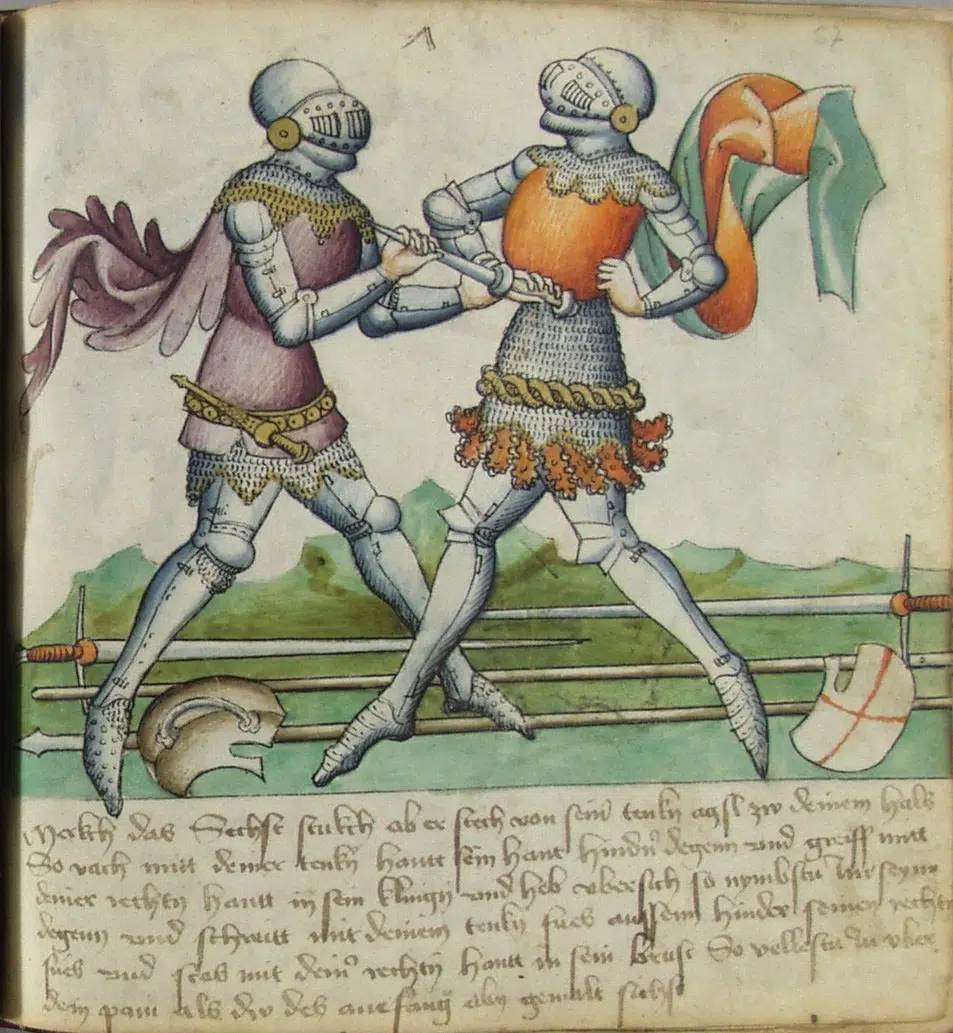 67
Merkh das Sechst stukch ab er stech von sein tenkn agsl zw deinem hals
So vach mit deiner tenkn hantt sein hant hindn degenn und greiff mitt
deiner rechtn hantt in sein klingn und heb ubersich so nymbstu im seynn
degenn und schreitt mit deinem tenkn fues aussem hinder seinen rechtn
fues und stos mit deinr rechtn hantt in sein brust So vellestu in uber
dein pain als dw des anefang abn gemalt sichst